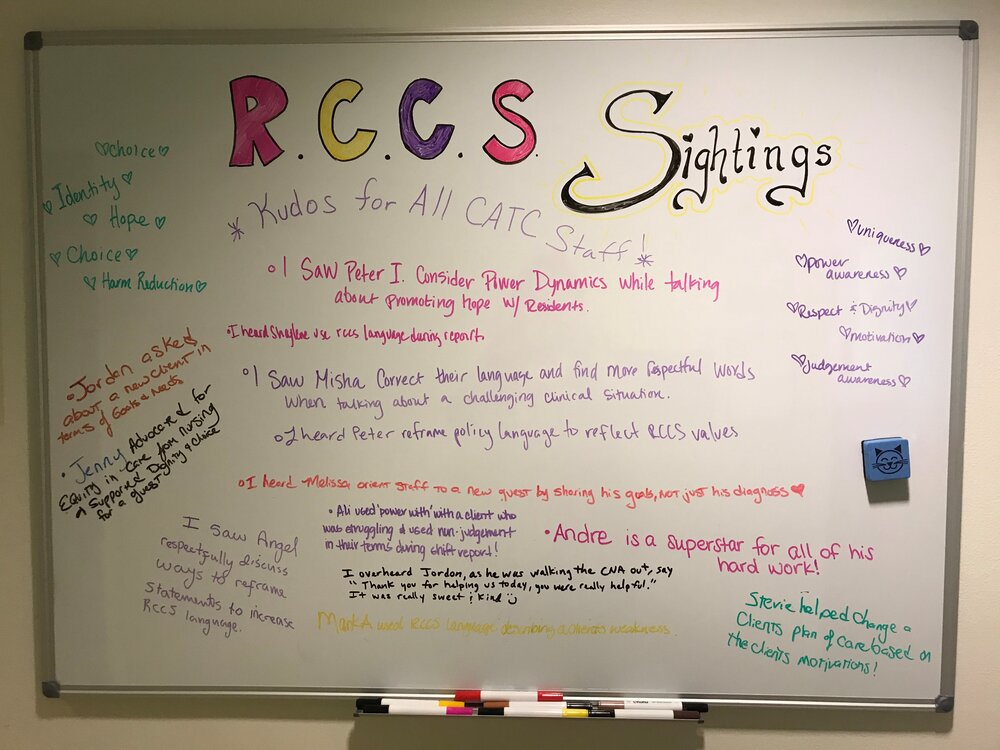 R.C.C.S. Sightings
* Kudos for All CATC Staff! *
♡Choice♡
♡Identity♡
♡ Hope♡
♡Choice♡
♡Harm Reduction♡
♡uniqueness♡
♡power
awareness♡
♡Respect & Dignity♡
♡motivation♡
♡judgement
awareness♡
• I Saw Peter I. Consider Power Dynamics while talking
about promoting Hope w/ Residents.
• I heard Shaylene use rccs language during report
• I Saw Misha Correct their language and find more respectful words
when talking about a challenging clinical situation.
• I heard Peter reframe policy language to reflect RCCS values
• I heard Melissa orient staff to a new guest by sharing his goals, not just his diagnosis ♥
• Jordan asked
about a new client in
terms of Goals & Needs
• Jenny Advocated for
Equity in care from nursing
& Supported Dignity & Choice
for a guest
I saw Angel
respectfully discuss
ways to reframe
statements to increase
RCCS language.
• Ali used "power with" with a client who
was struggling & used non-judgement
in their terms during shift report!
I overheard Jordon, as he was walking the CNA out, say
"Thank you for helping us today, you were really helpful."
It was really sweet & kind
Mark A used RCCS language describing a clients weakness
• Andre is a superstar for all of his
hard work!
Stevie helped Change a
Clients plan of care based on
the clients motivations!